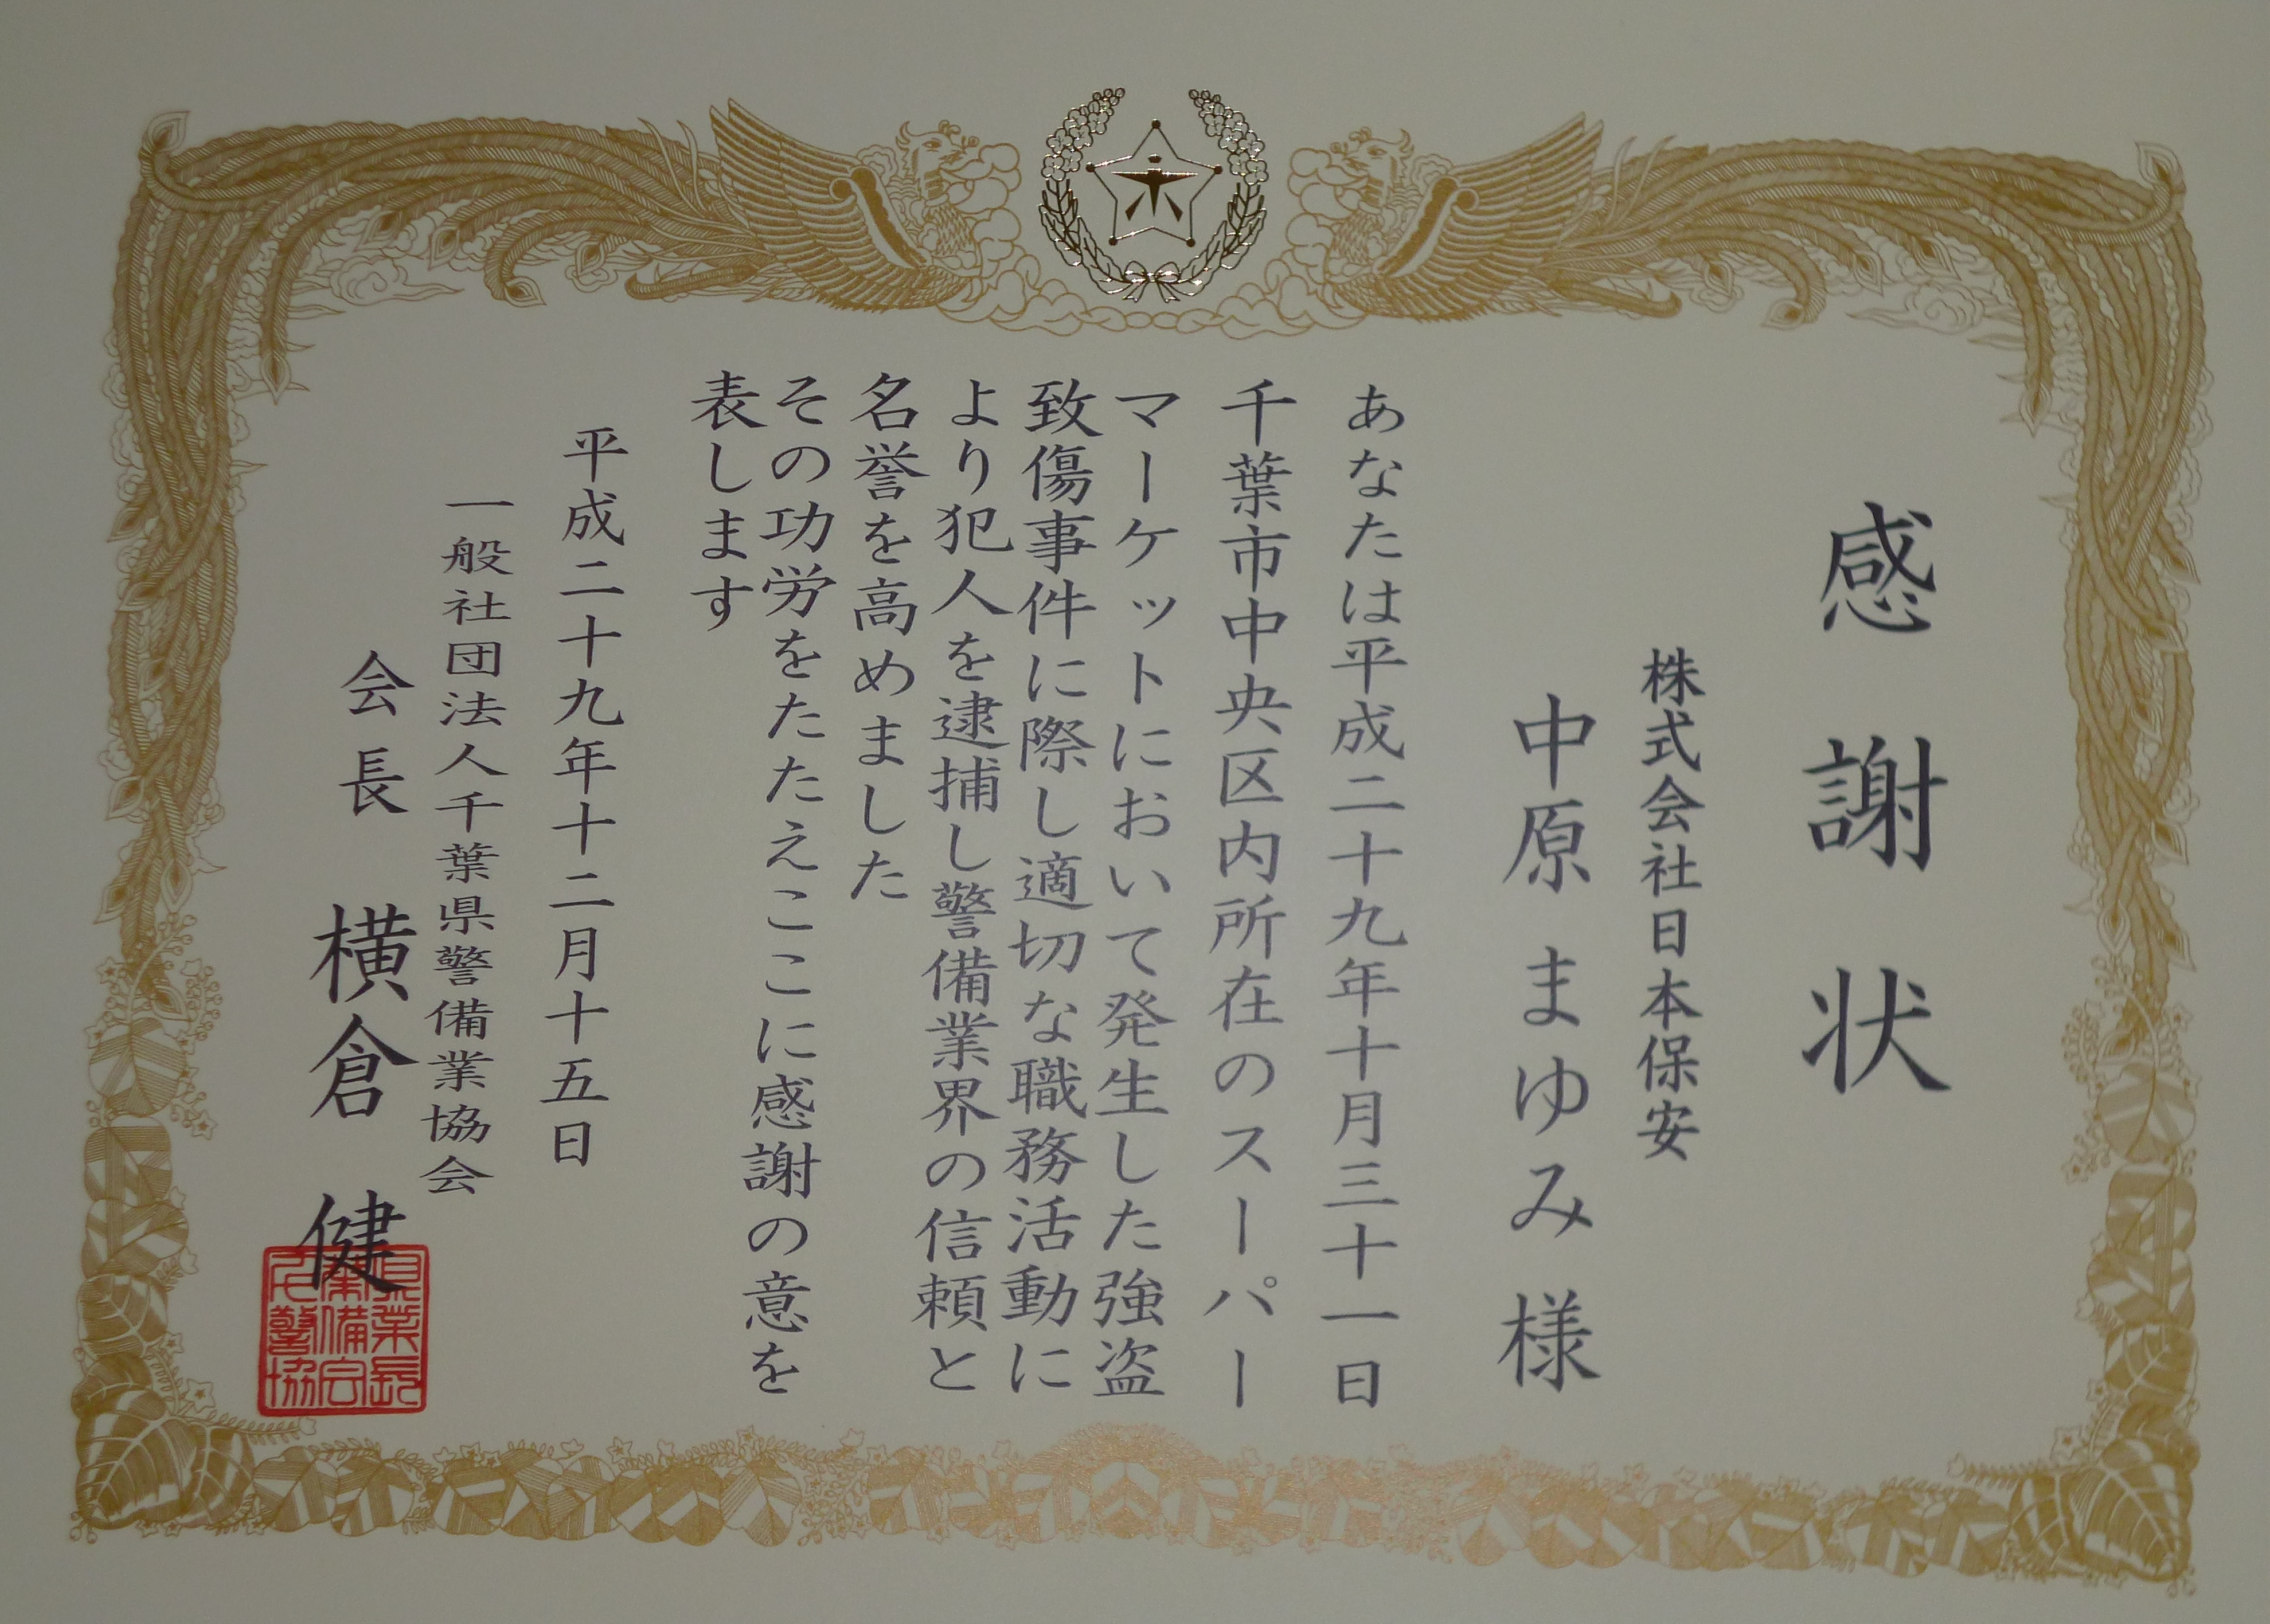 感謝状
株式会社日本保安
中原まゆみ様
あなたは平成二十九年十月三十一日
千葉市中央区内所在のスーパー
マーケットにおいて発生した強盗
致傷事件に際し適切な職務活動に
より犯人を逮捕し警備業界の信頼と
名誉を高めました
その功労をたたえここに感謝の意を
表します
平成二十九年十二月十五日
一般社団法人千葉県警備業協会
会長 横倉 健